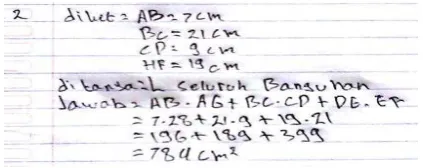 2 diket = AB = 7 cm
BC = 21 cm
CD = 9 cm
HF = 19 cm
ditanyaiL seluruh Bangunan
Jawab = AB . AG + BC . CD + DE . EF
= 7.28 + 21.9 + 19.21
= 196 + 189 + 399
= 784 cm²